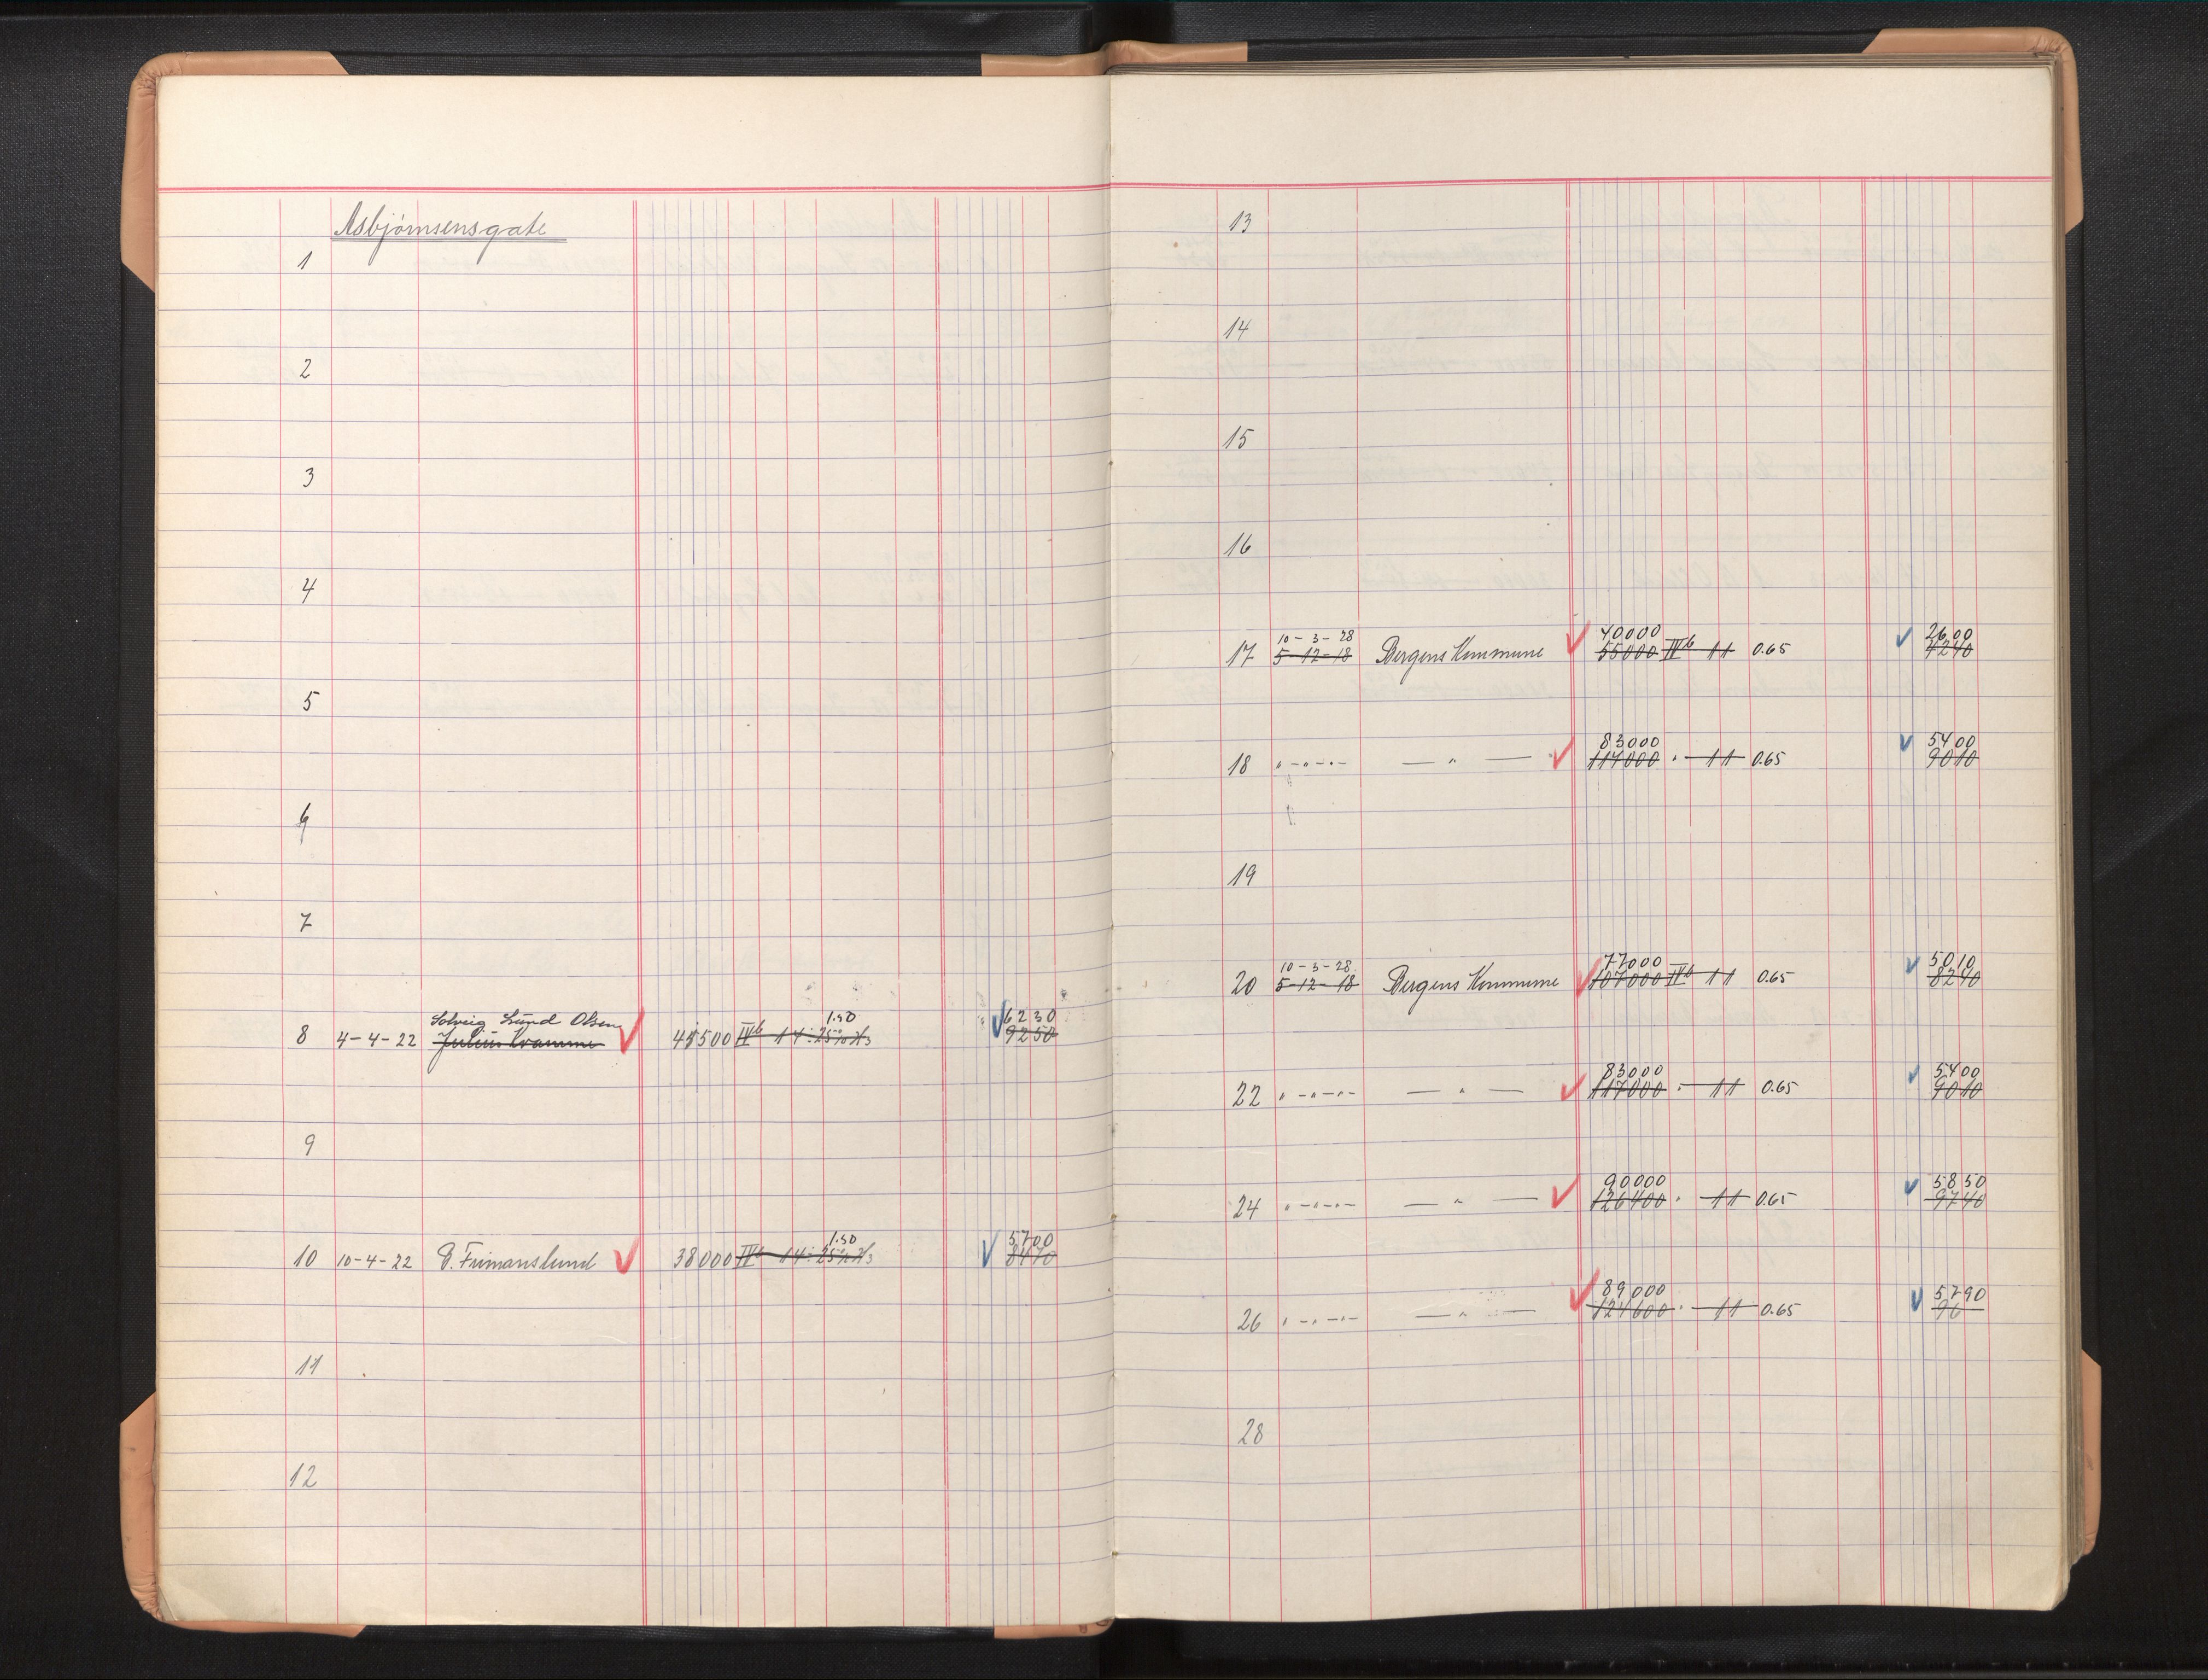 Asbjørnsensgate
1
2
3
4
5
6
7
Solveig Lund Olsen 1.50 6230
8 4-4-22 Julius Kvamme 41500 IVb 14 ÷ 25% 2/3 9250
9
1.50 5700
10 10-4-22 E. Frimanslund 38000 IVb 14 ÷ 25% 2/3 8470
11
12
13
14
15
16
10-3-28 40000 2600
17 5-12-18 Bergens Kommune 55000 IVb 11 0.65 4240
83000 5400
18 " - " - " - — " — 117000 " 11 0.65 9010
19
10-3-28 77000 5010
20 5-12-18 Bergens Kommune 107000 IVb 11 0.65 8240
83000 5400
22 " - " - " - — " — 117000 " 11 0.65 9010
90000 5850
24 " - " - " - — " — 126400 " 11 0.65 9740
89000 5790
26 " - " - " - — " — 124600 " 11 0.65 96
28